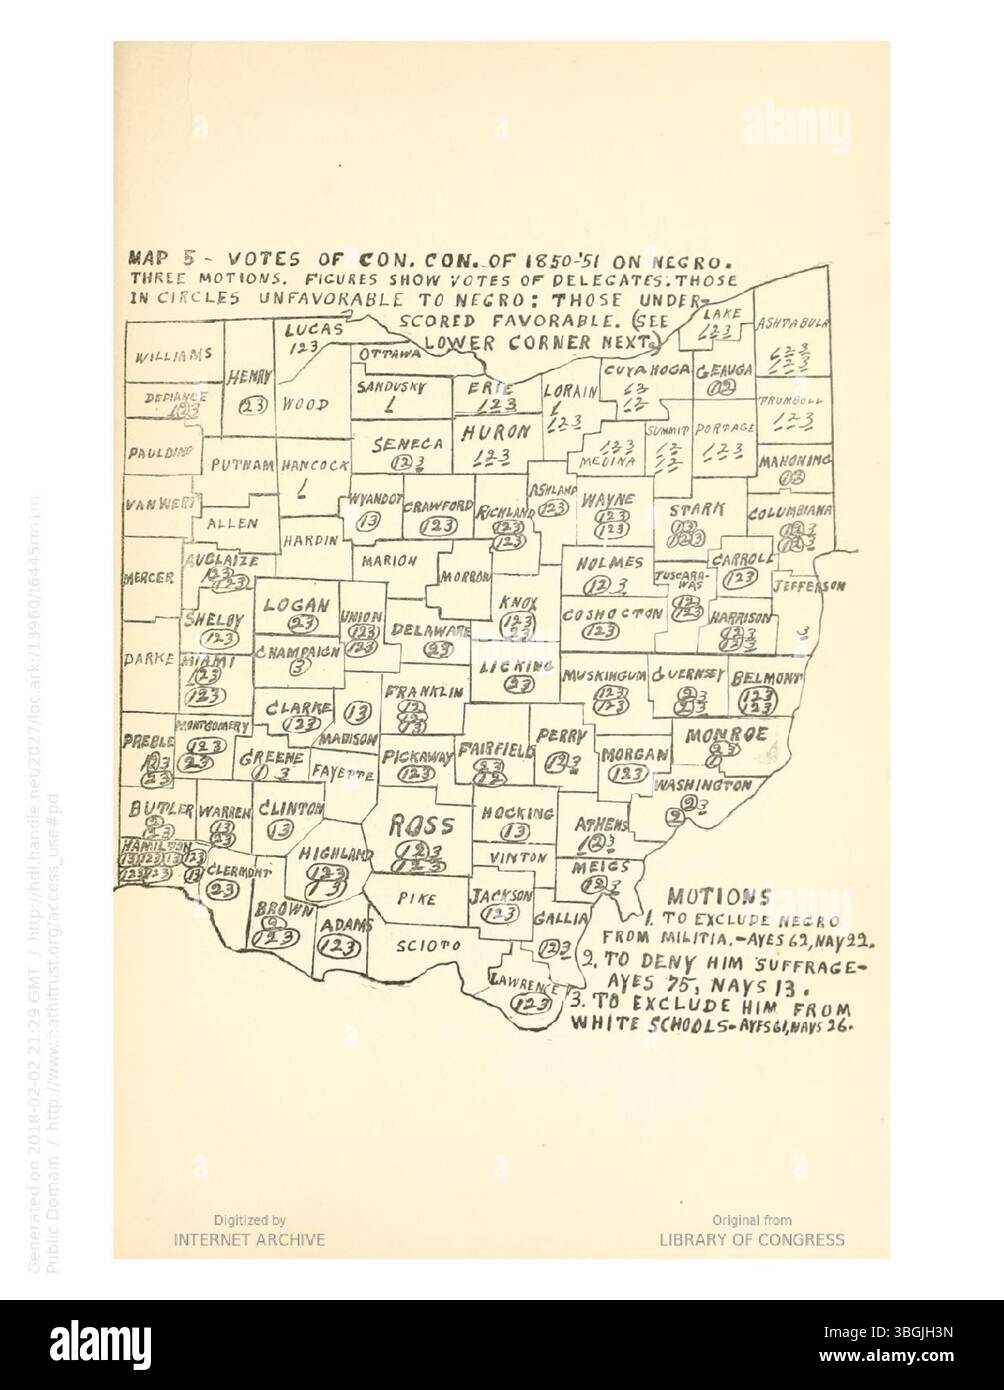 alamy
a
a
MAP 5 - VOTES OF CON. CON. OF 1850-'51 ON NEGRO.
THREE MOTIONS. FIGURES SHOW VOTES OF DELEGATES. THOSE
IN CIRCLES UNFAVORABLE TO NEGRO: THOSE UNDER-
SCORED FAVORABLE. (SEE
LOWER CORNER NEXT.)
WILLIAMS
HENRY
23
LUCAS
123
OTTAWA
LAKE
123
ASHTABULA
123
123
DEFIANCE
123
WOOD
SANDUSKY
1
ERIE
123
LORAIN
1
123
CUYAHOGA
GEAUGA
12
TRUMBULL
123
PAULDING
PUTNAM
HANCOCK
1
SENECA
123
HURON
123
123
MEDINA
SUMMIT
12
12
PORTAGE
123
MAHONING
12
VAN WERT
ALLEN
HARDIN
WYANDOT
13
CRAWFORD
123
RICHLAND
123
123
ASHLAND
123
WAYNE
123
123
STARK
COLUMBIANA
123
123
MERCER
AUGLAIZE
123
123
MARION
MORROW
HOLMES
123
TUSCARA-
WAS
CARROLL
123
JEFFERSON
3
SHELBY
123
LOGAN
23
UNION
123
123
DELAWARE
23
KNOX
123
23
COSHOCTON
123
HARRISON
123
123
DARKE
MIAMI
123
123
CHAMPAIGN
3
LICKING
23
MUSKINGUM
123
123
GUERNSEY
23
23
BELMONT
123
123
CLARKE
123
13
MADISON
FRANKLIN
12
12
13
PREBLE
123
23
MONTGOMERY
123
23
GREENE
1 3
FAYETTE
PICKAWAY
123
FAIRFIELD
23
12
PERRY
123
MORGAN
123
MONROE
23
1
WASHINGTON
23
2
BUTLER
2
123
WARREN
13
23
CLINTON
13
ROSS
123
123
HOCKING
13
ATHENS
123
HAMILTON
13 123 13 123
123 123 13
CLERMONT
23
HIGHLAND
123
13
VINTON
MEIGS
123
BROWN
2
123
ADAMS
123
PIKE
SCIOTO
JACKSON
123
GALLIA
123
LAWRENCE
123
MOTIONS
1. TO EXCLUDE NEGRO
FROM MILITIA.-AYES 62, NAY 22.
2. TO DENY HIM SUFFRAGE-
AYES 75, NAYS 13.
3. TO EXCLUDE HIM FROM
WHITE SCHOOLS-AYES 61, NAYS 26.
alamy
alamy
Digitized by
INTERNET ARCHIVE
Original from
LIBRARY OF CONGRESS
Generated on 2018-02-02 21:29 GMT / http://hdl.handle.net/2027/loc.ark:/13960/t6445rm1m
Public Domain / http://www.hathitrust.org/access_use#pd
alamy
Image ID: 3BGJH3N
www.alamy.com